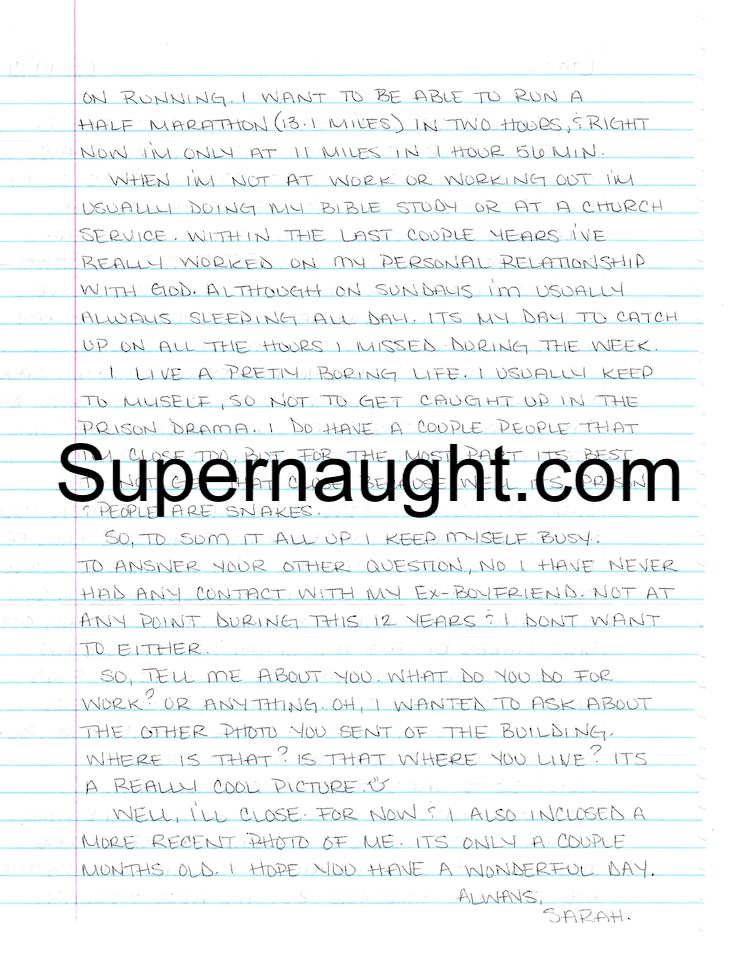 ON RUNNING. I WANT TO BE ABLE TO RUN A
HALF MARATHON (13.1 MILES) IN TWO HOURS, & RIGHT
NOW I'M ONLY AT 11 MILES IN 1 HOUR 56 MIN.
WHEN I'M NOT AT WORK OR WORKING OUT I'M
USUALLY DOING MY BIBLE STUDY OR AT A CHURCH
SERVICE. WITHIN THE LAST COUPLE YEARS I'VE
REALLY WORKED ON MY PERSONAL RELATIONSHIP
WITH GOD. ALTHOUGH ON SUNDAYS I'M USUALLY
ALWAYS SLEEPING ALL DAY. ITS MY DAY TO CATCH
UP ON ALL THE HOURS I MISSED DURING THE WEEK.
I LIVE A PRETTY BORING LIFE. I USUALLY KEEP
TO MYSELF, SO NOT TO GET CAUGHT UP IN THE
PRISON DRAMA. I DO HAVE A COUPLE PEOPLE THAT
I'M CLOSE TOO, BUT FOR THE MOST PART ITS BEST
Supernaught.com
TO NOT GET THAT CLOSE BECAUSE WELL ITS PRISON
& PEOPLE ARE SNAKES.
SO, TO SUM IT ALL UP I KEEP MYSELF BUSY.
TO ANSWER YOUR OTHER QUESTION, NO I HAVE NEVER
HAD ANY CONTACT WITH MY EX-BOYFRIEND. NOT AT
ANY POINT DURING THIS 12 YEARS & I DONT WANT
TO EITHER.
SO, TELL ME ABOUT YOU. WHAT DO YOU DO FOR
WORK? OR ANYTHING. OH, I WANTED TO ASK ABOUT
THE OTHER PHOTO YOU SENT OF THE BUILDING.
WHERE IS THAT? IS THAT WHERE YOU LIVE? ITS
A REALLY COOL PICTURE.
WELL, I'LL CLOSE FOR NOW & I ALSO INCLOSED A
MORE RECENT PHOTO OF ME. ITS ONLY A COUPLE
MONTHS OLD. I HOPE YOU HAVE A WONDERFUL DAY.
ALWAYS,
SARAH.